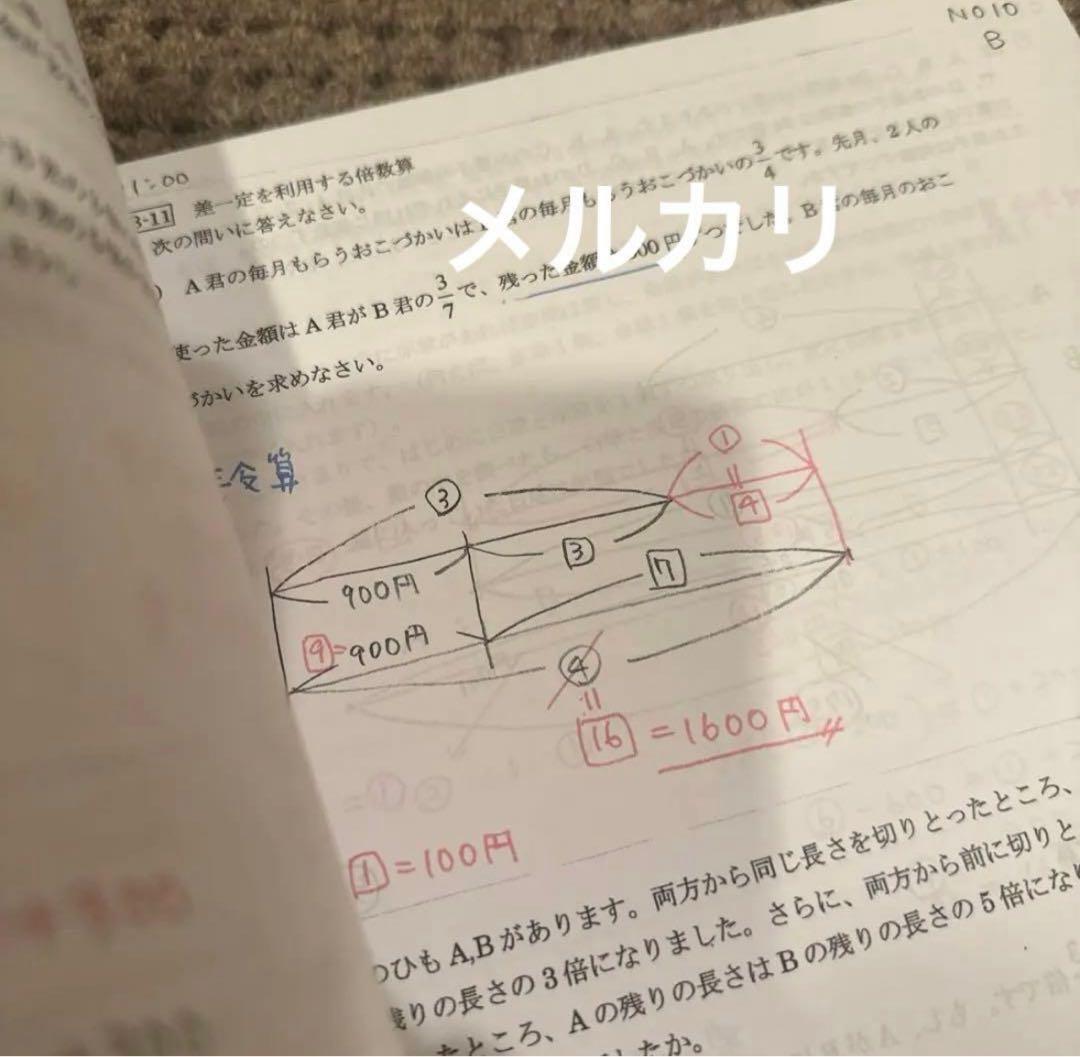 NO10
B
1:00
3-11 差一定を利用する倍数算
次の問いに答えなさい。
) A君の毎月もらうおこづかいは の毎月もらうおこづかいの3/4です。先月、2人の
使った金額はA君がB君の3/7で、残った金額 900円 つでした。B君の毎月のおこ
づかいを求めなさい。
メルカリ
算
③
①
=
4
900円
3
7
9=900円
④
=
16=1600円
1=100円
のひもA,Bがあります。両方から同じ長さを切りとったところ、
残りの長さの3倍になりました。さらに、両方から前に切りと
たところ、Aの残りの長さはBの残りの長さの5倍にな
したか。